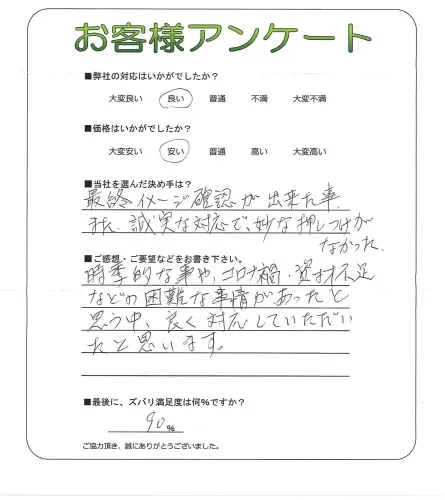 お客様アンケート
■弊社の対応はいかがでしたか?
大変良い 良い 普通 不満 大変不満
■価格はいかがでしたか?
大変安い 安い 普通 高い 大変高い
■当社を選んだ決め手は?
最終イメージ確認が出来た事、
また、誠実な対応で、妙な押しつけが
なかった。
■ご感想・ご要望などをお書き下さい。
時季的な事や、コロナ禍・資材不足
などの困難な事情があったと
思う中、良く対応していただい
たと思います。
■最後に、ズバリ満足度は何%ですか?
90%
ご協力頂き、誠にありがとうございました。